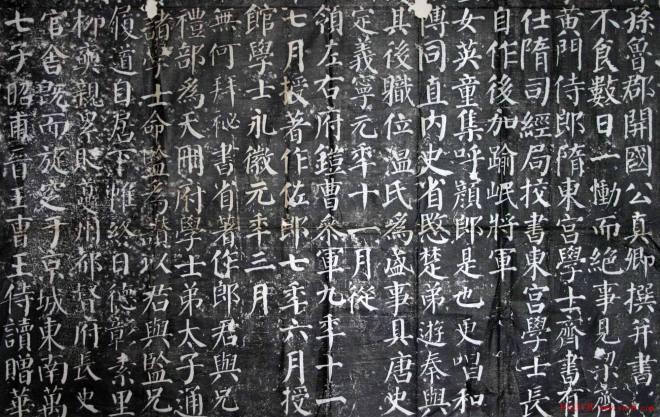 孫魯郡開國公真卿撰并書
不食數日一慟而絕事見梁齊
黃門侍郎隋東宮學士齊書有
仕隋司經局校書東宮學士長
自作後加踰岷將軍
女英童集呼顏郎是也更唱和
傅同直内史省愍楚弟遊秦與
其後職位溫氏為盛事具唐史
定義寧元年十一月從
領左右府鎧曹參軍九年十一
七月授著作佐郎七年六月授
館學士永徽元年三月
無何拜祕書省著作郎君與兄
禮部為天冊府學士弟太子通
諸學士命監為讚以君與監兄
履道自居下帷終日德彰素里
柳奭親累貶夔州都督府長史
官舍既而旋窆于京城東南萬
七子昭甫晉王曹王侍讀贈華